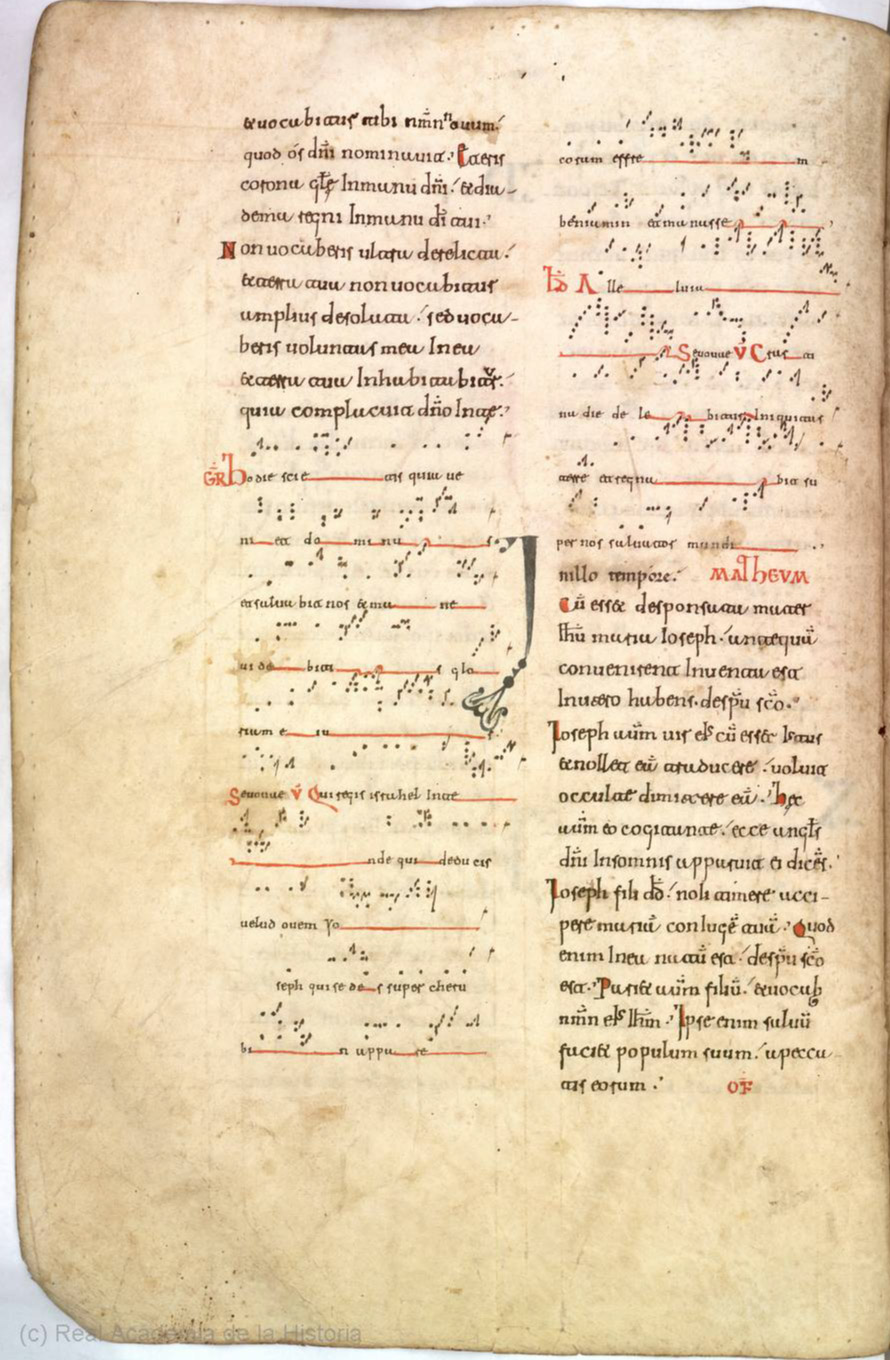 & uocabitur tibi nm̄ nouum.
quod os dn̄i nominauit. Et eris
corona gl̄e In manu dn̄i. & dia-
dema regni In manu di tui.
Non uocaberis ultra derelicta.
& terra tua non uocabitur
amplius desolata. sed uoca-
beris uoluntas mea In ea
& terra tua Inhabitabitur.
quia complacuit dn̄o In te.
GR Hodie scie tis quia ue
ni et do mi nu s
et saluabit nos & ma ne
uide bitis glo
riam e iu s
Seuouae V̄ Qui regis israhel Inte
nde qui deducis
uelud ouem Yo
seph qui sedes super cheru
bin appare
coram effre m
beniamin et manasse
Alle luia
Seuouae V̄ Crasti
na die dele bitur Iniquitas
terre et regna bit su
per nos saluator mundi
In illo tempore. MATHEUM
Cū esset desponsata mater
Ihū maria Ioseph. antequā
convenirent Inventa est
In utero habens. de spū sco.
Ioseph autm̄ uir eīs cū esset Iustus
& nollet eā traducere. uoluit
occulte dimittere eā. Hec
autm̄ eo cogitante. ecce angl̄s
dn̄i In somnis apparuit ei dicēs.
Ioseph fili dd̄. noli timere acci-
pere mariā coniugē tuā. Quod
enim In ea natū est. de spū sco
est. Pariet autm̄ filiū. & uocab
nm̄n eīs Ihm̄. Ipse enim saluū
faciet populum suum. a pecca
tis eorum. OF
(c) Real Academia de la Historia